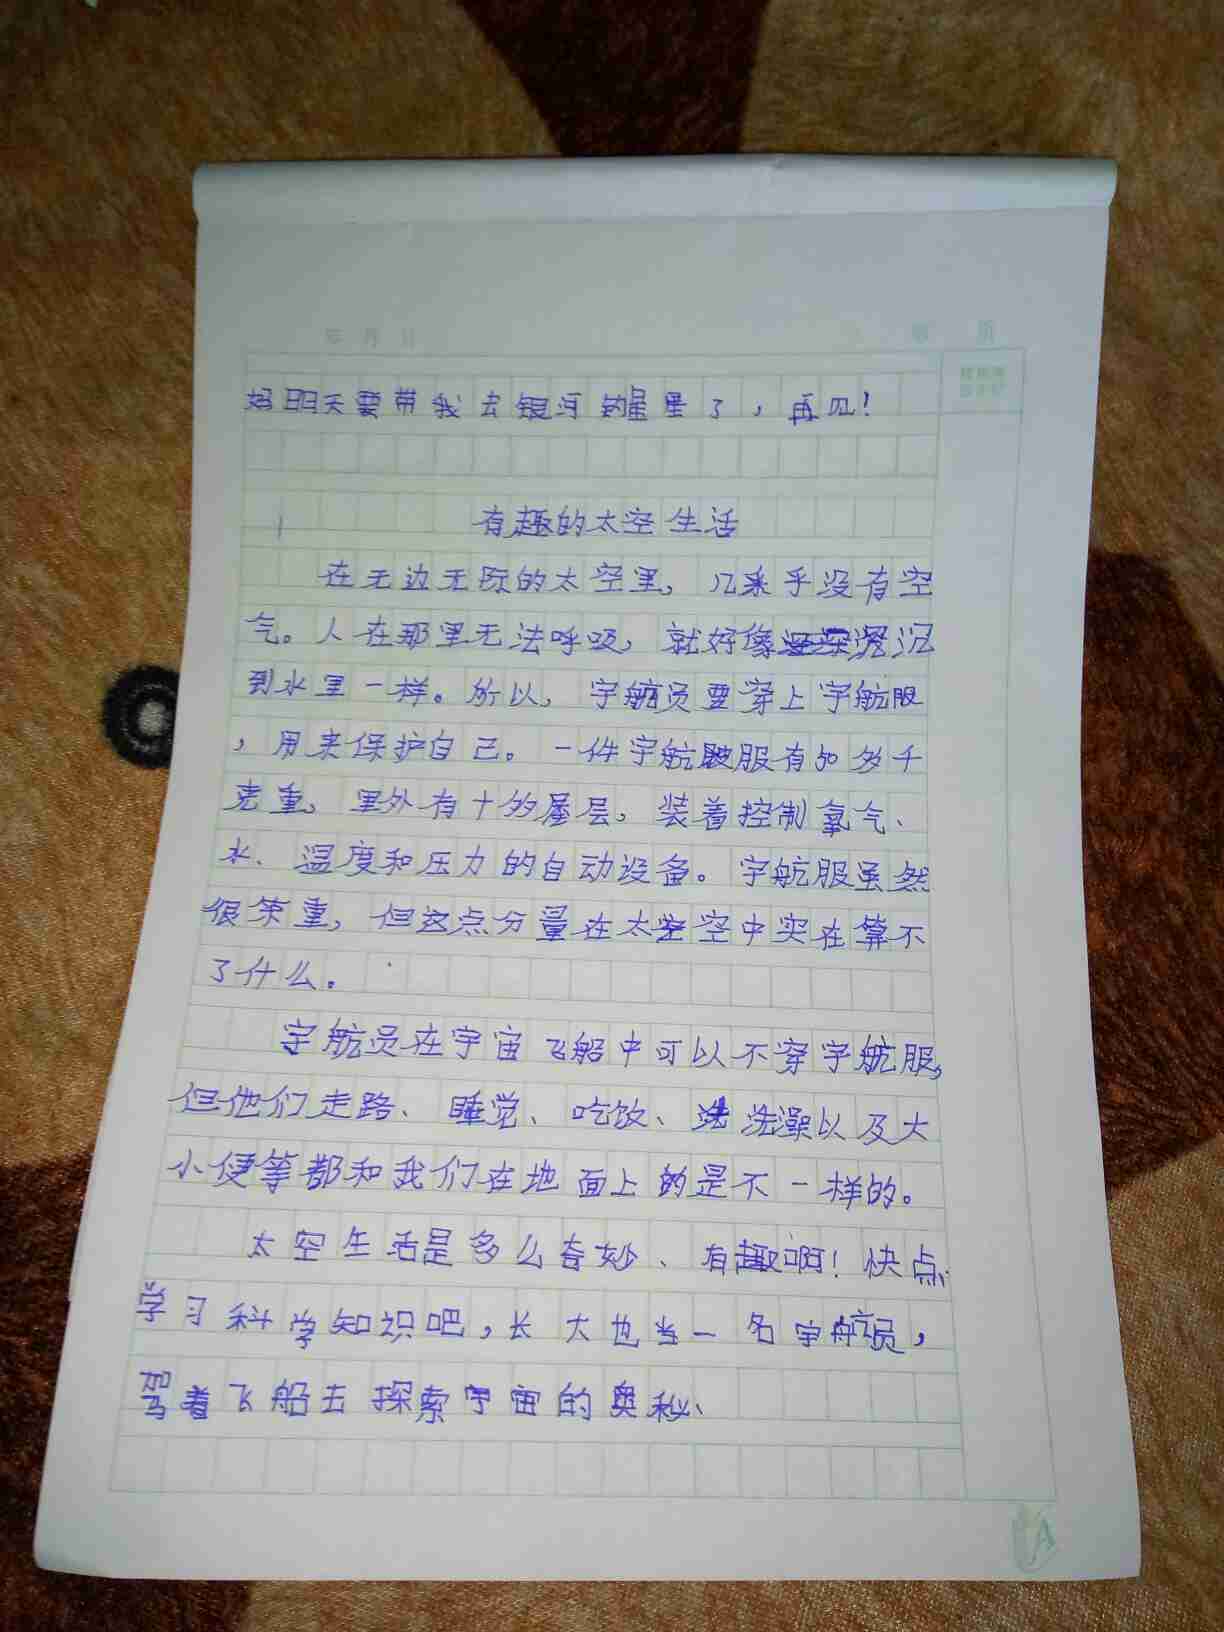 妈明天要带我去银河的星里了，再见！
有趣的太空生活
在无边无际的太空里，几乎没有空
气。人在那里无法呼吸，就好像沉
到水里一样。所以，宇航员要穿上宇航服
，用来保护自己。一件宇航服有50多千
克重，里外有十多层，装着控制氧气、
水、温度和压力的自动设备。宇航服虽然
很笨重，但这点分量在太空中实在算不
了什么。
宇航员在宇宙飞船中可以不穿宇航服，
但他们走路、睡觉、吃饮、洗澡以及大
小便等都和我们在地面上的是不一样的。
太空生活是多么奇妙、有趣啊！快点
学习科学知识吧，长大也当一名宇航员，
驾着飞船去探索宇宙的奥秘、